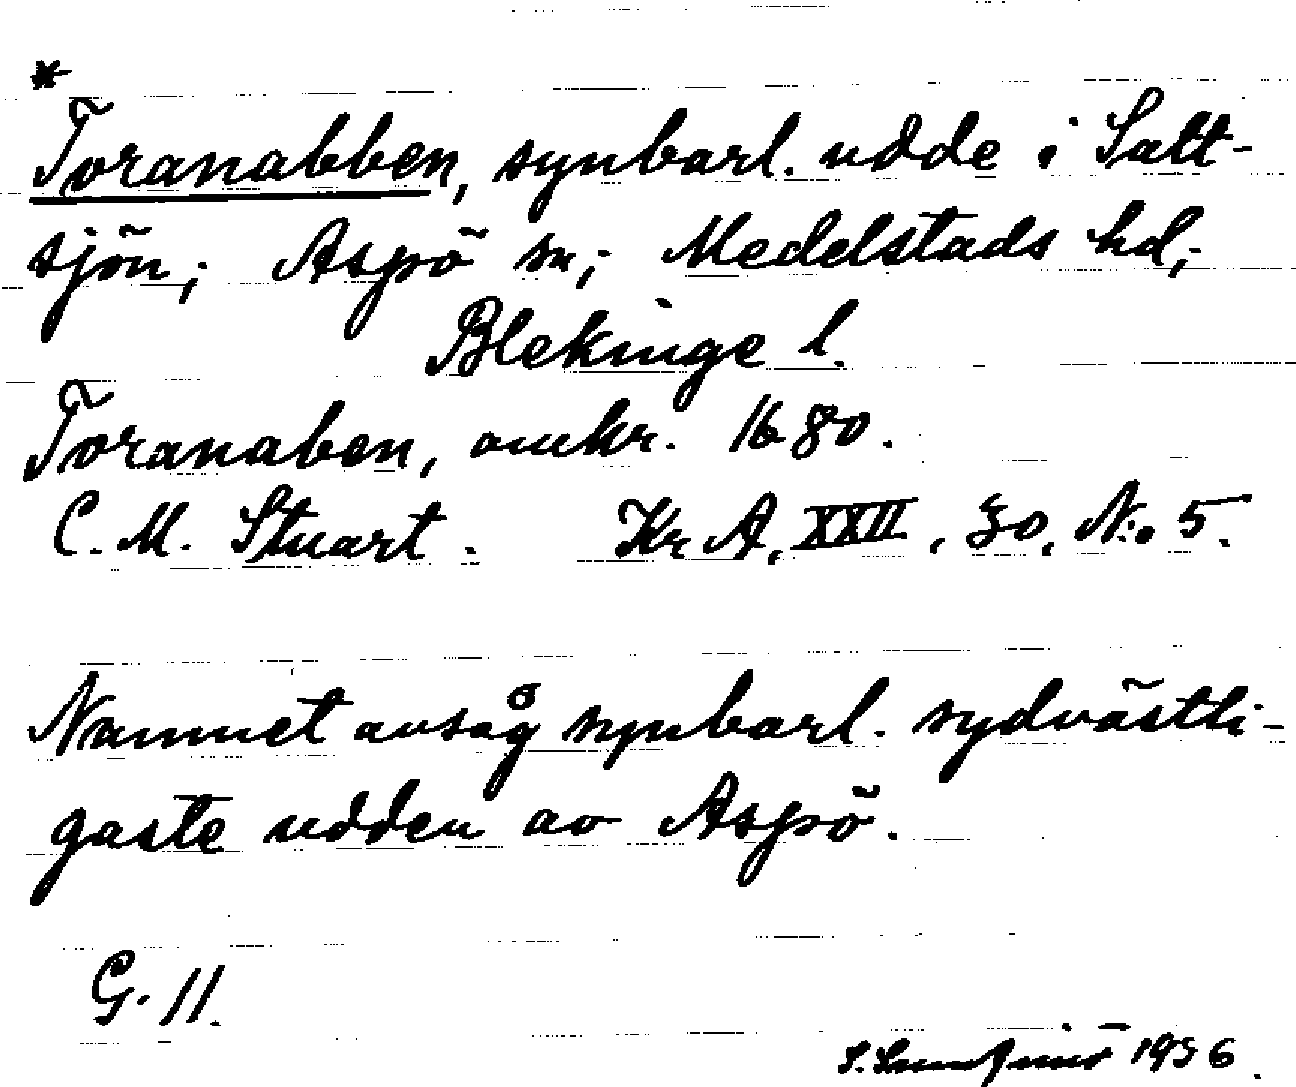 *
Toranabben, synbarl. udde i Salt-
sjön; Aspö sn; Medelstads hd;
Blekinge l.
Toranaben, omkr. 1680.
C. M. Stuart. Kr A, XXII, 30, No 5.
Namnet avsåg synbarl. sydvästli-
gaste udden av Aspö.
G. 11.
1936.